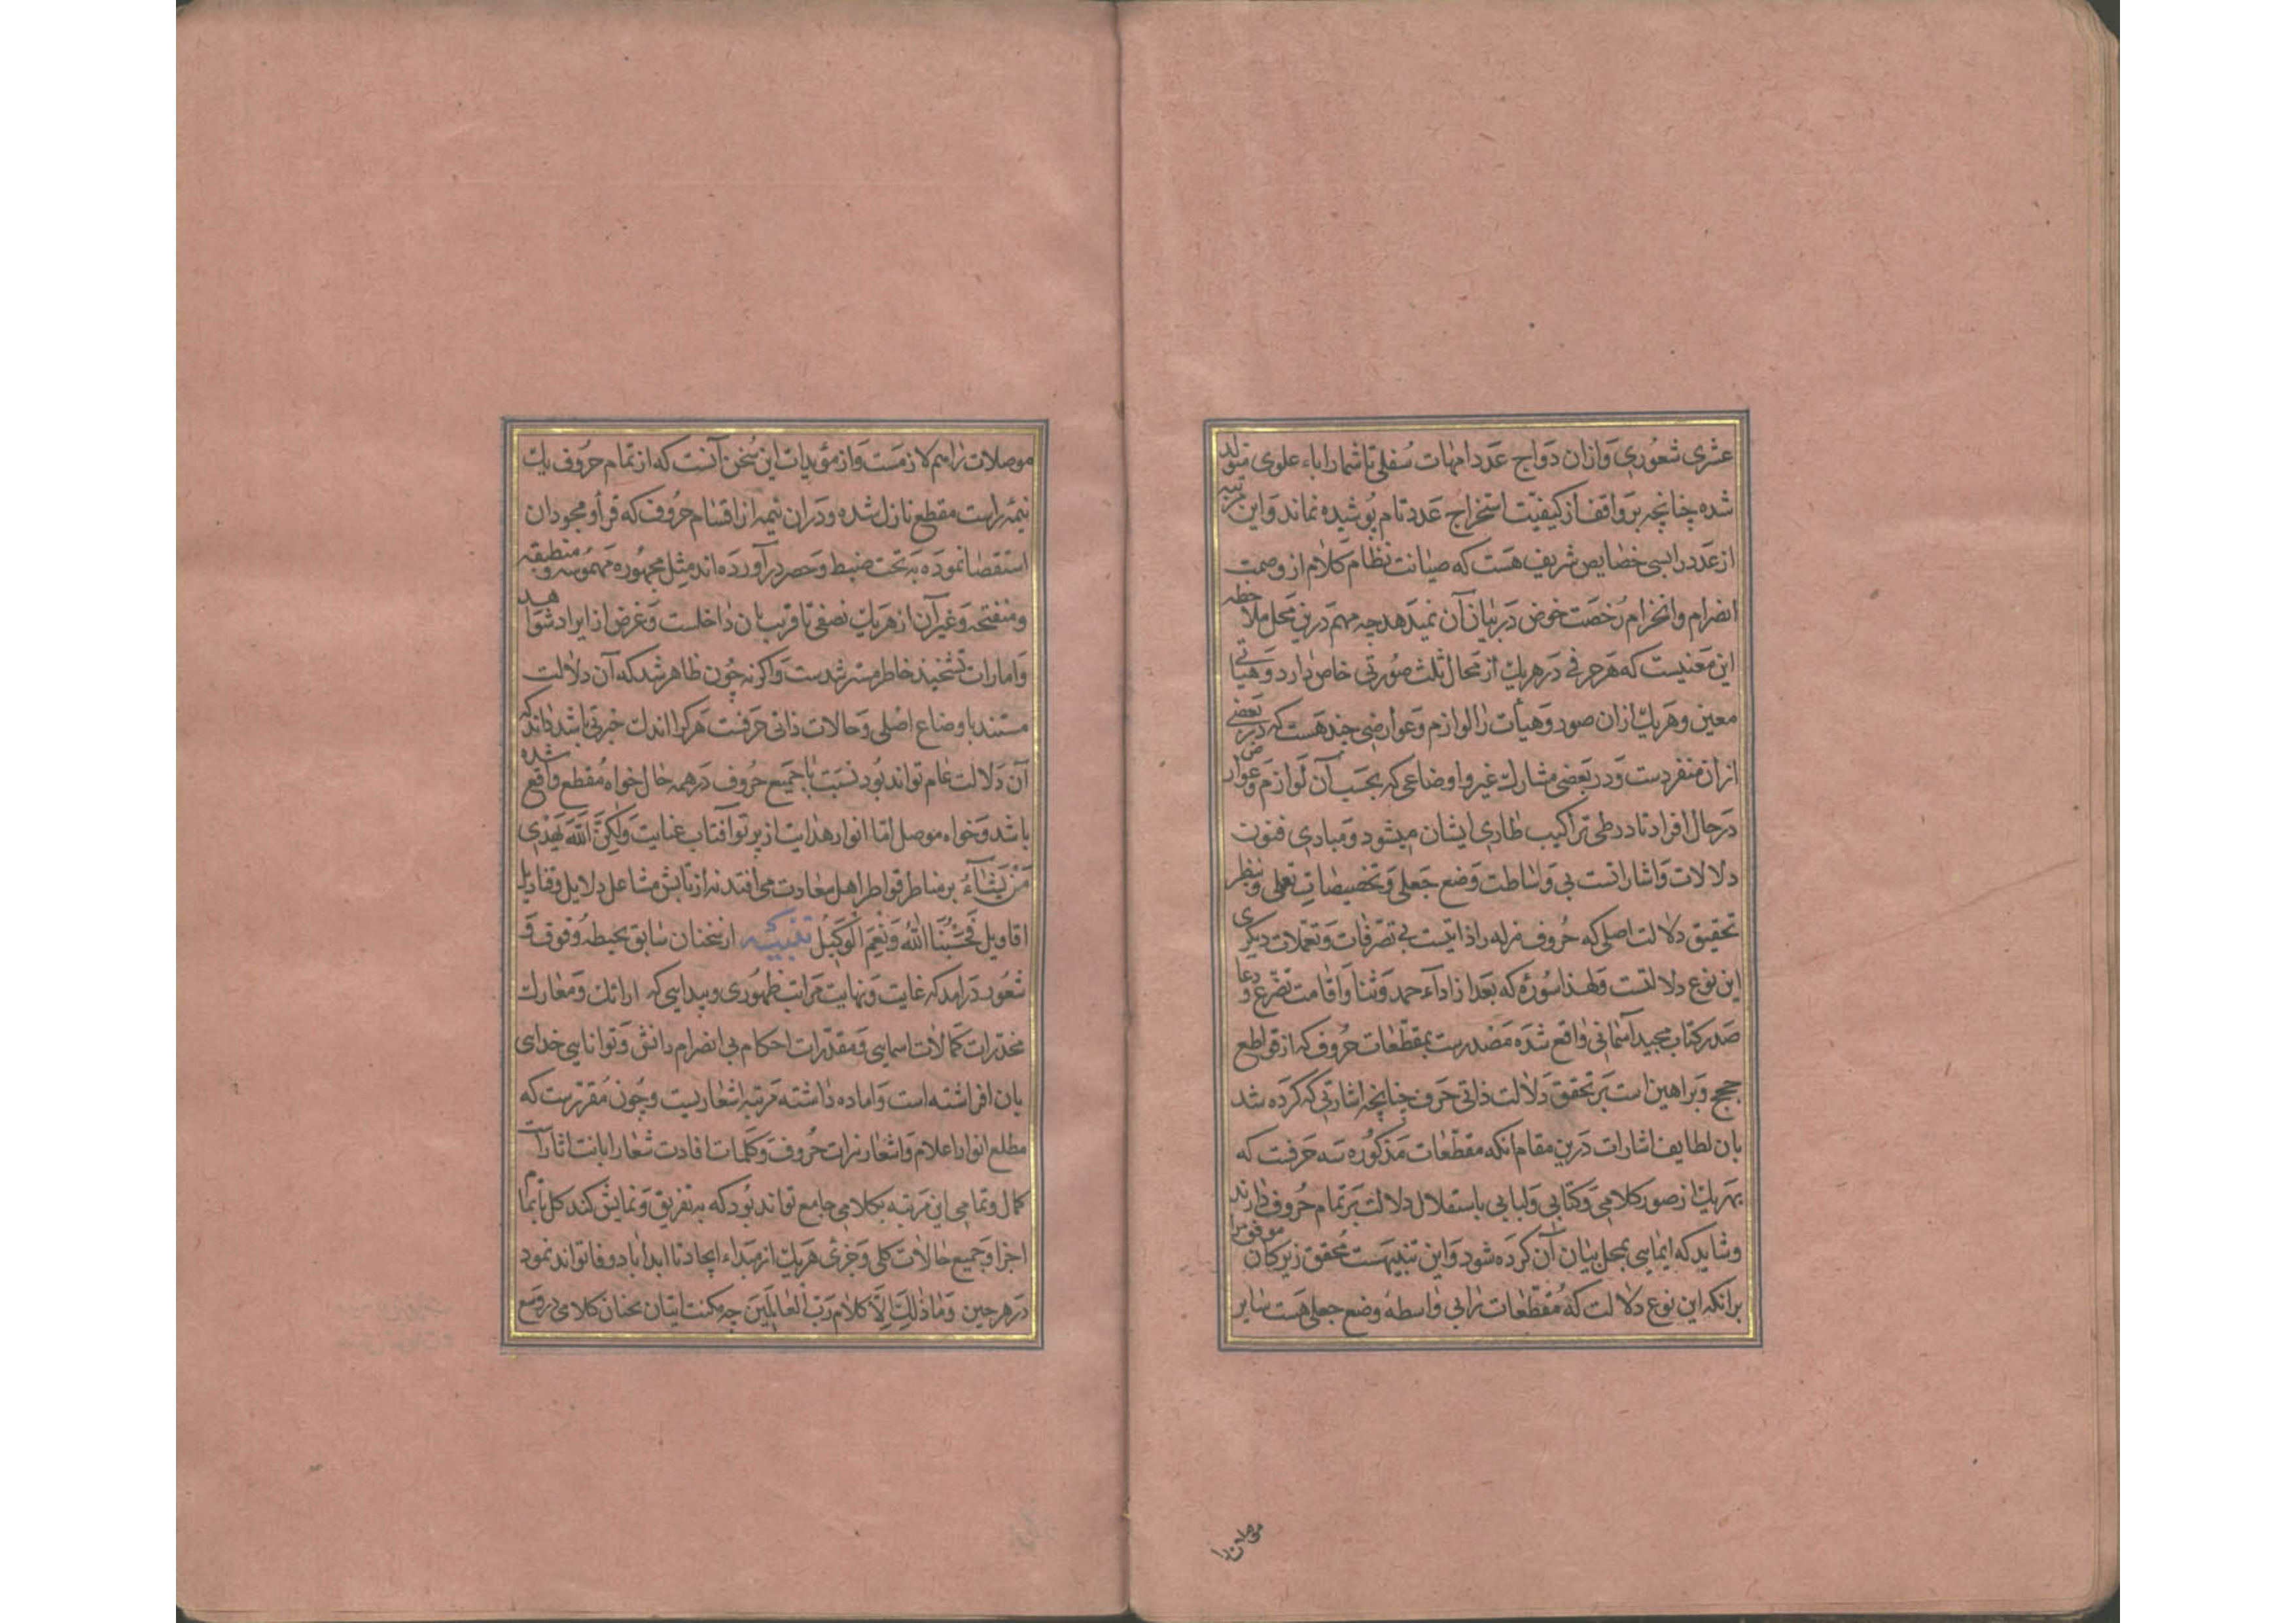 عشری شعوری و ازان دواج عدد امهات سفلی تا شمار اباء علوی متولد
شده چنانچه بر واقف از کیفیت استخراج عدد تام پوشیده نماند و این مرتبه
از عدد را بسی خصایص شریف هست که صیانت نظام کلام از وصمت
انصرام و انخرام رخصت خوض در بیان آن نمیدهد چه مهم درین محل ملاحظه
این معنیست که هر حرفی در هر یک از محال ثلث صورتی خاص دارد و هیأتی
معین و هر یک ازان صور و هیأت را لوازم و عوارضی چند هست که در بعضی
ازان منفردست و در بعضی مشارک غیر و اوضاعی که بحسب آن لوازم و عوارض
در حال افراد تا در طی تراکیب طاری ایشان میشود و مبادی فنون
دلالات و اشاراتست بی وساطت وضع جعلی و تخصیصات تعملی و بنظر
تحقیق دلالت اصلی که حروف منزله را ذاتیست بی تصرفات و تعملات دیگری
این نوع دلالتست و لهذا سوره که بعد از اداء حمد و ثنا و اقامت تضرع و دعا
صدر کتاب مجید آسمانی واقع شده مصدرست بمقطعات حروف که از قواطع
حجج و براهین است بر تحقق دلالت ذاتی حرف چنانچه اشارتی که کرده شد
بان لطایف اشارات درین مقام انکه مقطعات مذکوره سه حرفست که
بهر یک از صور کلامی و کتابی و لبابی باستقلال دلالت بر تمام حروف دارند
و شاید که ایمایی بمحل بیان آن کرده شود و این تنبیهست محقق زیرکان موفق را
برانکه این نوع دلالت که مقطعات را بی واسطه وضع جعلی هست سایر
موصلات را
موصلات را هم لازمست و از مؤیدات این سخن آنست که از تمام حروف یک
نیمه راست مقطع نازل شده و دران نیمه از اقسام حروف که قرأ و مجودان
استقصا نموده به تحت ضبط و حصر درآورده اند مثل مجهوره و مهموسه و منطبقه
و منفتحه و غیر آن از هر یک نصفی تا قریب بان داخلست و غرض از ایراد شواهد
و امارات تشحیذ خاطر مسترشدست و اگر نه چون ظاهر شد که آن دلالت
مستند باوضاع اصلی و حالات ذاتی حرفست هر کرا اندک خبرتی باشد داند که
آن دلالت عام تواند بود نسبت با جمیع حروف در همه حال خواه مقطع واقع شده
باشد و خواه موصل اما انوار هدایت از پرتو آفتاب عنایت وَلٰکِنَّ اللّٰهَ یَهْدِی
مَنْ یَشَآءُ بر مناظر قواطر اهل سعادت می افتد نه از تابش مشاعل دلایل و قنادیل
اقاویل فَحَسْبُنَا اللّٰهُ وَنِعْمَ الْوَکِیلُ تنبیه از سخنان سابق بحیطه وقوف و
شعور درامد که غایت و نهایت مراتب ظهوری و پیدایی که ارائک و معارک
مخدرات کمالات اسمایی و مقدرات احکام بی انصرام دانش و توانایی خدای
بان افراشته است و اماده داشته مرتبه اشعاریست و چون مقررست که
مطلع انوار اعلام و اشعار نیرات حروف و کلمات افادت شعار ابانت اثارات
کمال و تمامی این مرتبه بکلامی جامع تواند بود که به تفریق و نمایش کند کل تا بتمام
اجزا و جمیع حالات کلی و جزئی هر یک از مبداء ایجاد تا ابد اباد و وفا تواند نمود
در هر حین وَمَا ذٰلِکَ اِلَّا کَلَامُ رَبِّ الْعَالَمِینَ چه مکنت اتیان بچنان کلامی در وسع